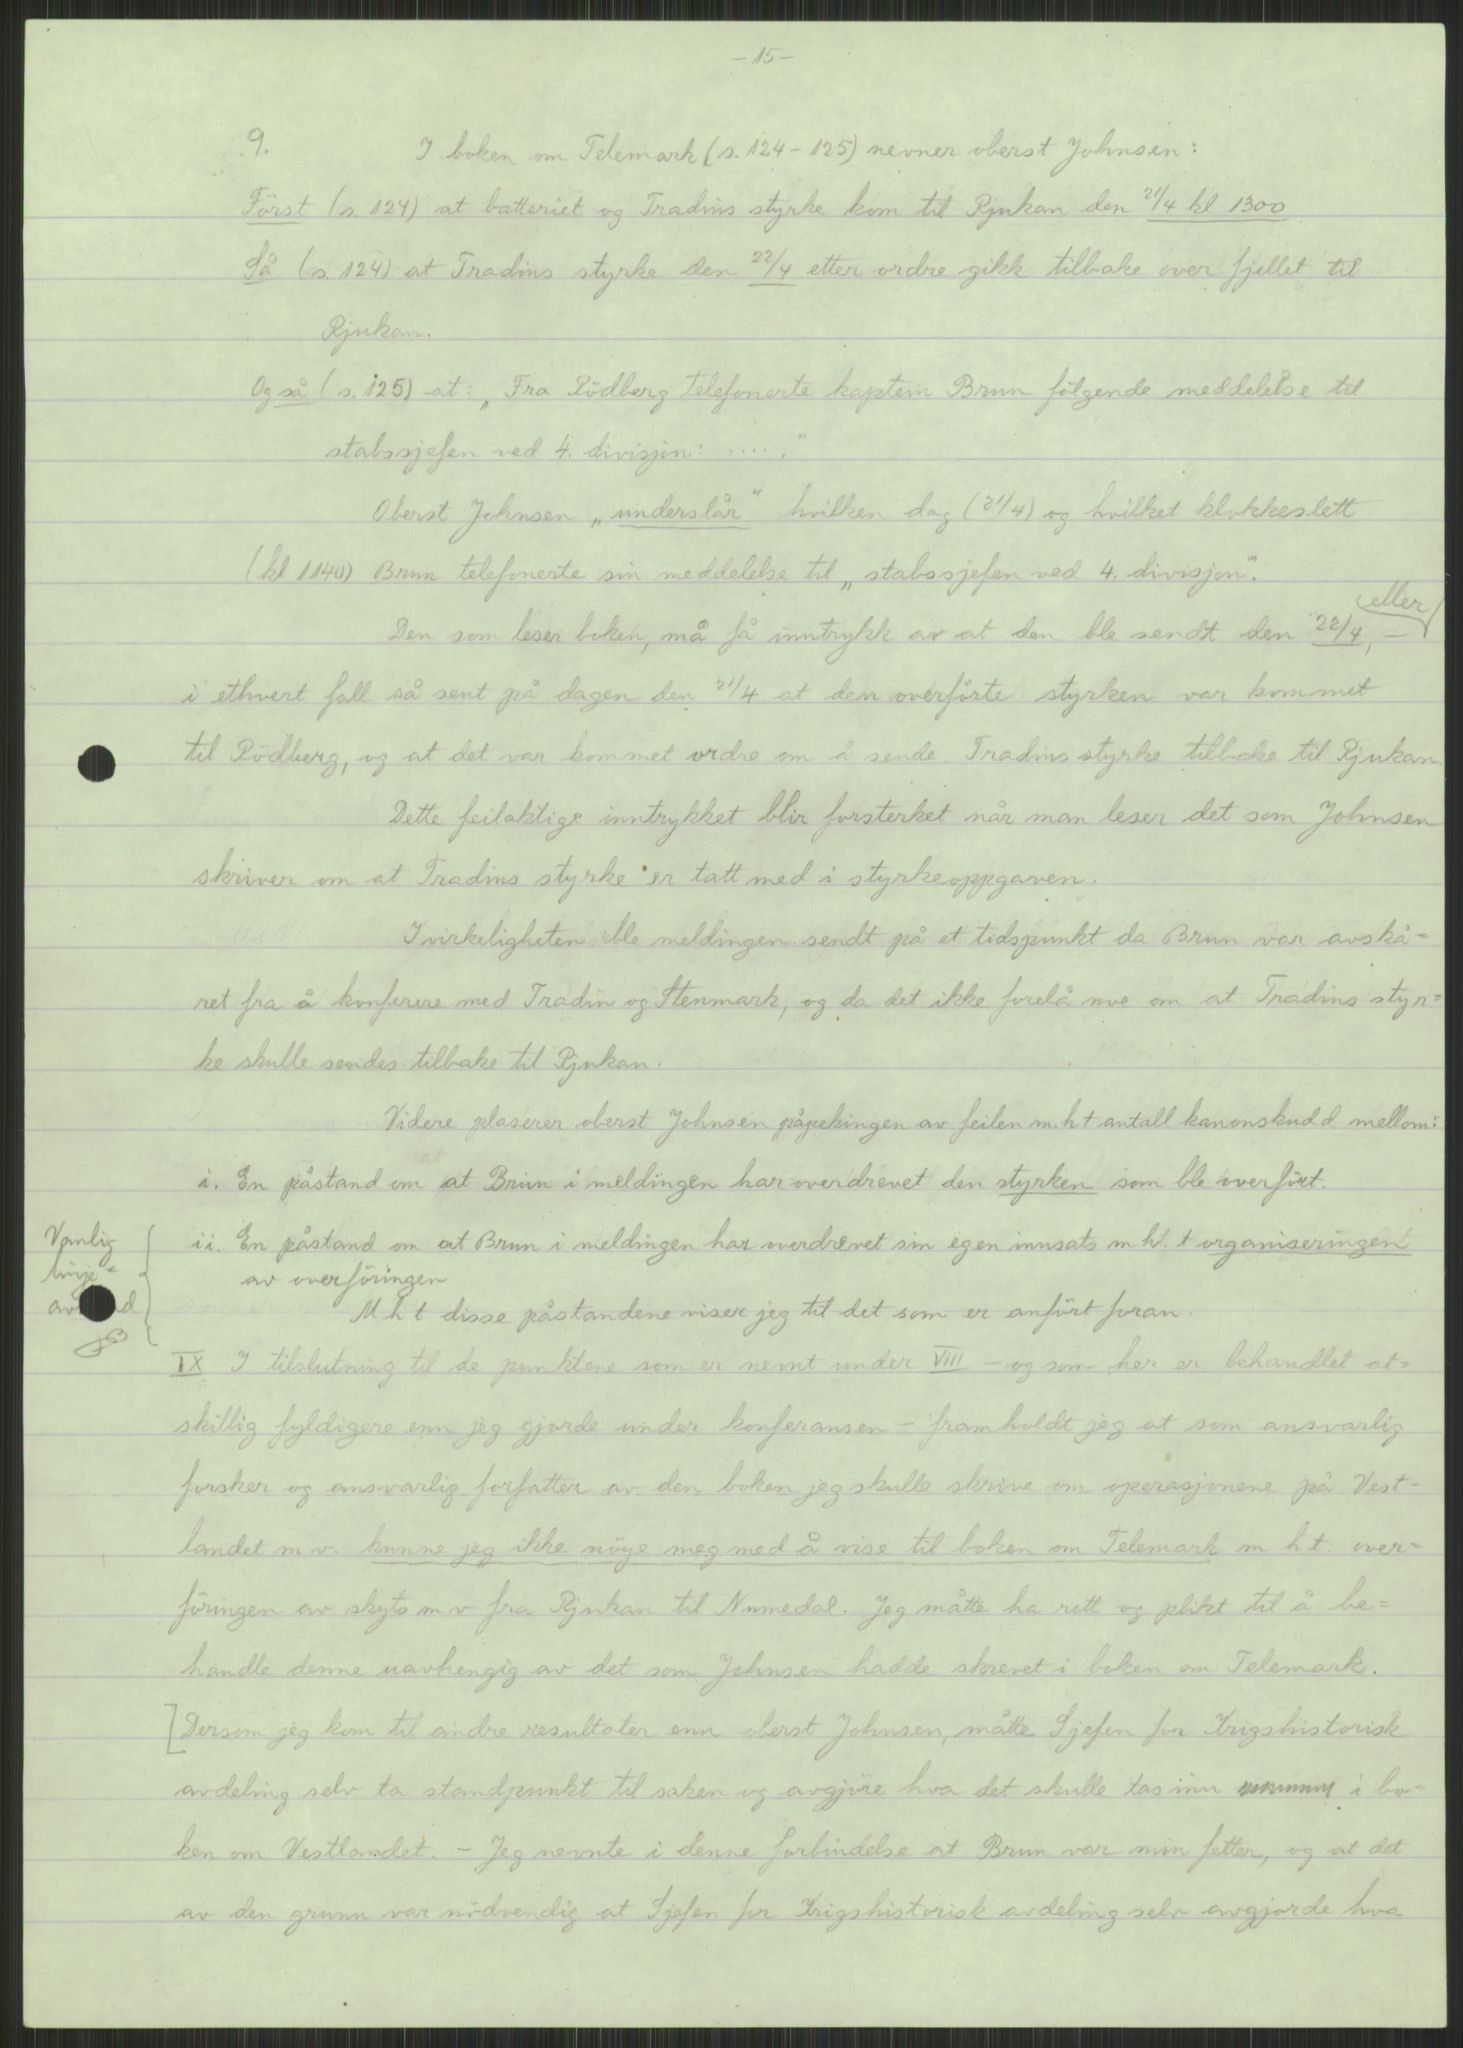 - 15 -
9. I boken om Telemark (s. 124 - 125) nevner oberst Johnsen:
Först (s. 124) at batteriet og Tradins styrke kom til Rjukan den 21/4 kl 1300
Så (s. 124) at Tradins styrke den 22/4 etter ordre gikk tilbake over fjellet til
Rjukan.
Og så (s. 125) at: „Fra Rödberg telefonerte kaptein Brun fölgende meddelelse til
stabssjefen ved 4. divisjon: ....."
Oberst Johnsen „underslår" hvilken dag (21/4) og hvilket klokkeslett
(kl 1140) Brun telefonerte sin meddelelse til „stabssjefen ved 4. divisjon".
eller
Den som leser boken, må få inntrykk av at den ble sendt den 22/4, -
i ethvert fall så sent på dagen den 21/4 at den overförte styrken var kommet
til Rödberg, og at det var kommet ordre om å sende Tradins styrke tilbake til Rjukan.
Dette feilaktige inntrykket blir forsterket når man leser det som Johnsen
skriver om at Tradins styrke er tatt med i styrkeoppgaven.
I virkeligheten ble meldingen sendt på et tidspunkt da Brun var avskå=
ret fra å konferere med Tradin og Stenmark, og da det ikke forelå noe om at Tradins styr=
ke skulle sendes tilbake til Rjukan.
Videre plaserer oberst Johnsen påpekingen av feilen m.h t antall kanonskudd mellom:
i. En påstand om at Brun i meldingen har overdrevet den styrken som ble overfört.
ii. En påstand om at Brun i meldingen har overdrevet sin egen innsats m h. t organiseringen
av overföringen
Vanlig
linje=
M h t disse påstandene viser jeg til det som er anfört foran.
IX I tilslutning til de punktene som er nevnt under VIII - og som her er behandlet at=
skillig fyldigere enn jeg gjorde under konferansen - framholdt jeg at som ansvarlig
forsker og ansvarlig forfatter av den boken jeg skulle skrive om operasjonene på Vest-
landet m v. kunne jeg ikke nöye meg med å vise til boken om Telemark m h t. over=
föringen av skyts m v fra Rjukan til Numedal. Jeg måtte ha rett og plikt til å be=
handle denne uavhengig av det som Johnsen hadde skrevet i boken om Telemark.
[Dersom jeg kom til andre resultater enn oberst Johnsen, måtte Sjefen for Krigshistorisk
avdeling selv ta standpunkt til saken og avgjöre hva det skulle tas inn i bo=
ken om Vestlandet. - Jeg nevnte i denne forbindelse at Brun var min fetter, og at det
av den grunn var nödvendig at Sjefen for Krigshistorisk avdeling selv avgjorde hva